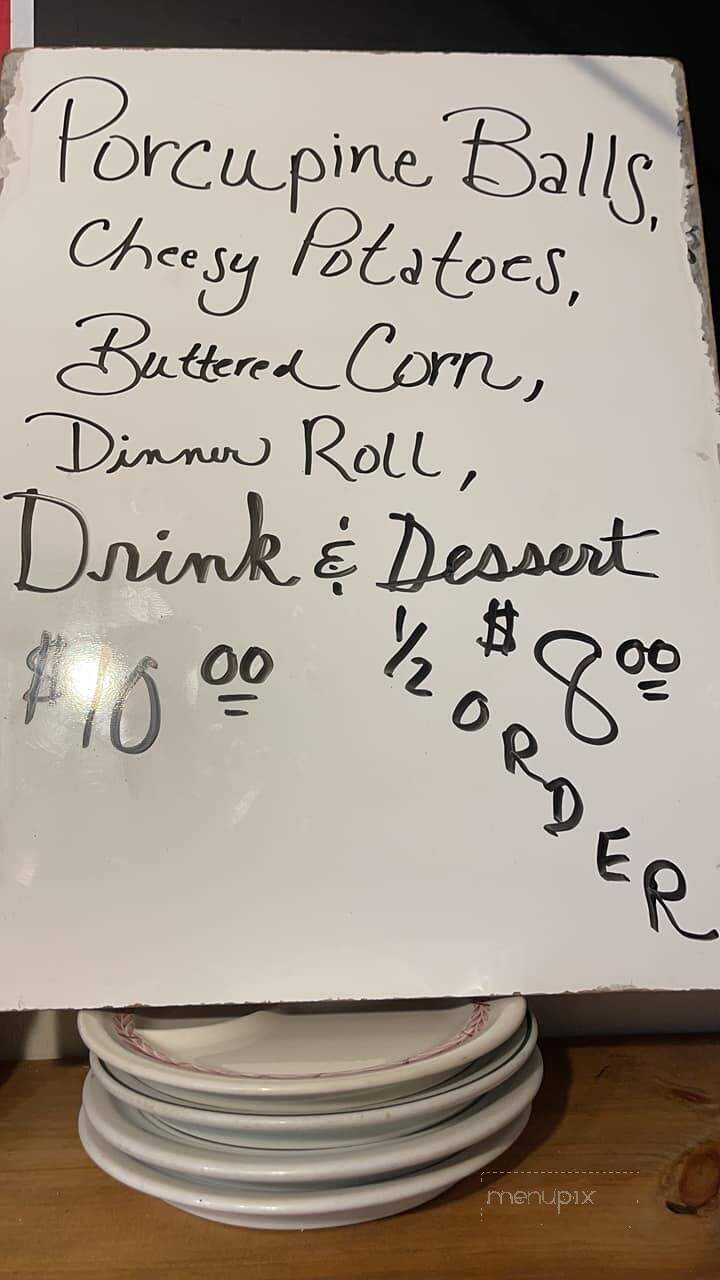 Porcupine Balls,
Cheesy Potatoes,
Buttered Corn,
Dinner Roll,
Drink & Dessert
$10 00
1/2 ORDER $8 00
menupix